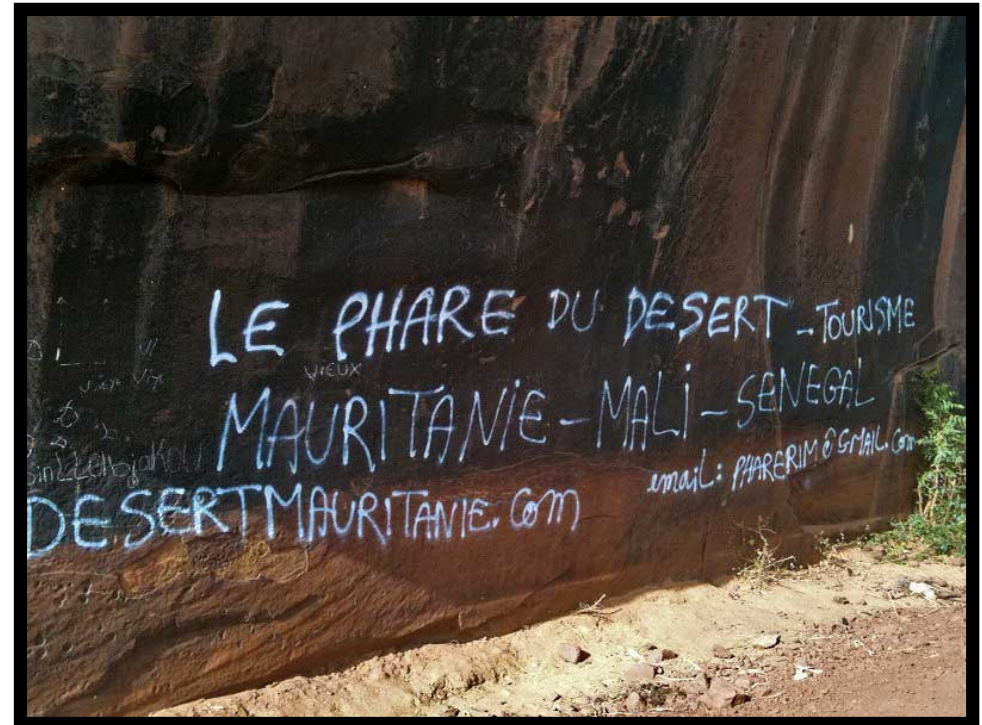 LE PHARE DU DESERT - TOURISME
VIEUX
MAURITANIE - MALI - SENEGAL
email: PHARERIM@GMAIL.COM
DESERTMAURITANIE.COM